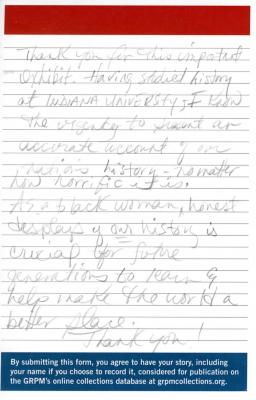 Thank you for this important
exhibit. Having studied history
at INDIANA UNIVERSITY, I know
the urgency to present an
accurate account of our
nation's history - no matter
how horrific it is.
As a black woman, honest
displays of our history is
crucial for future
generations to learn &
help make the world a
better place.
Thank you!
By submitting this form, you agree to have your story, including
your name if you choose to record it, considered for publication on
the GRPM's online collections database at grpmcollections.org.